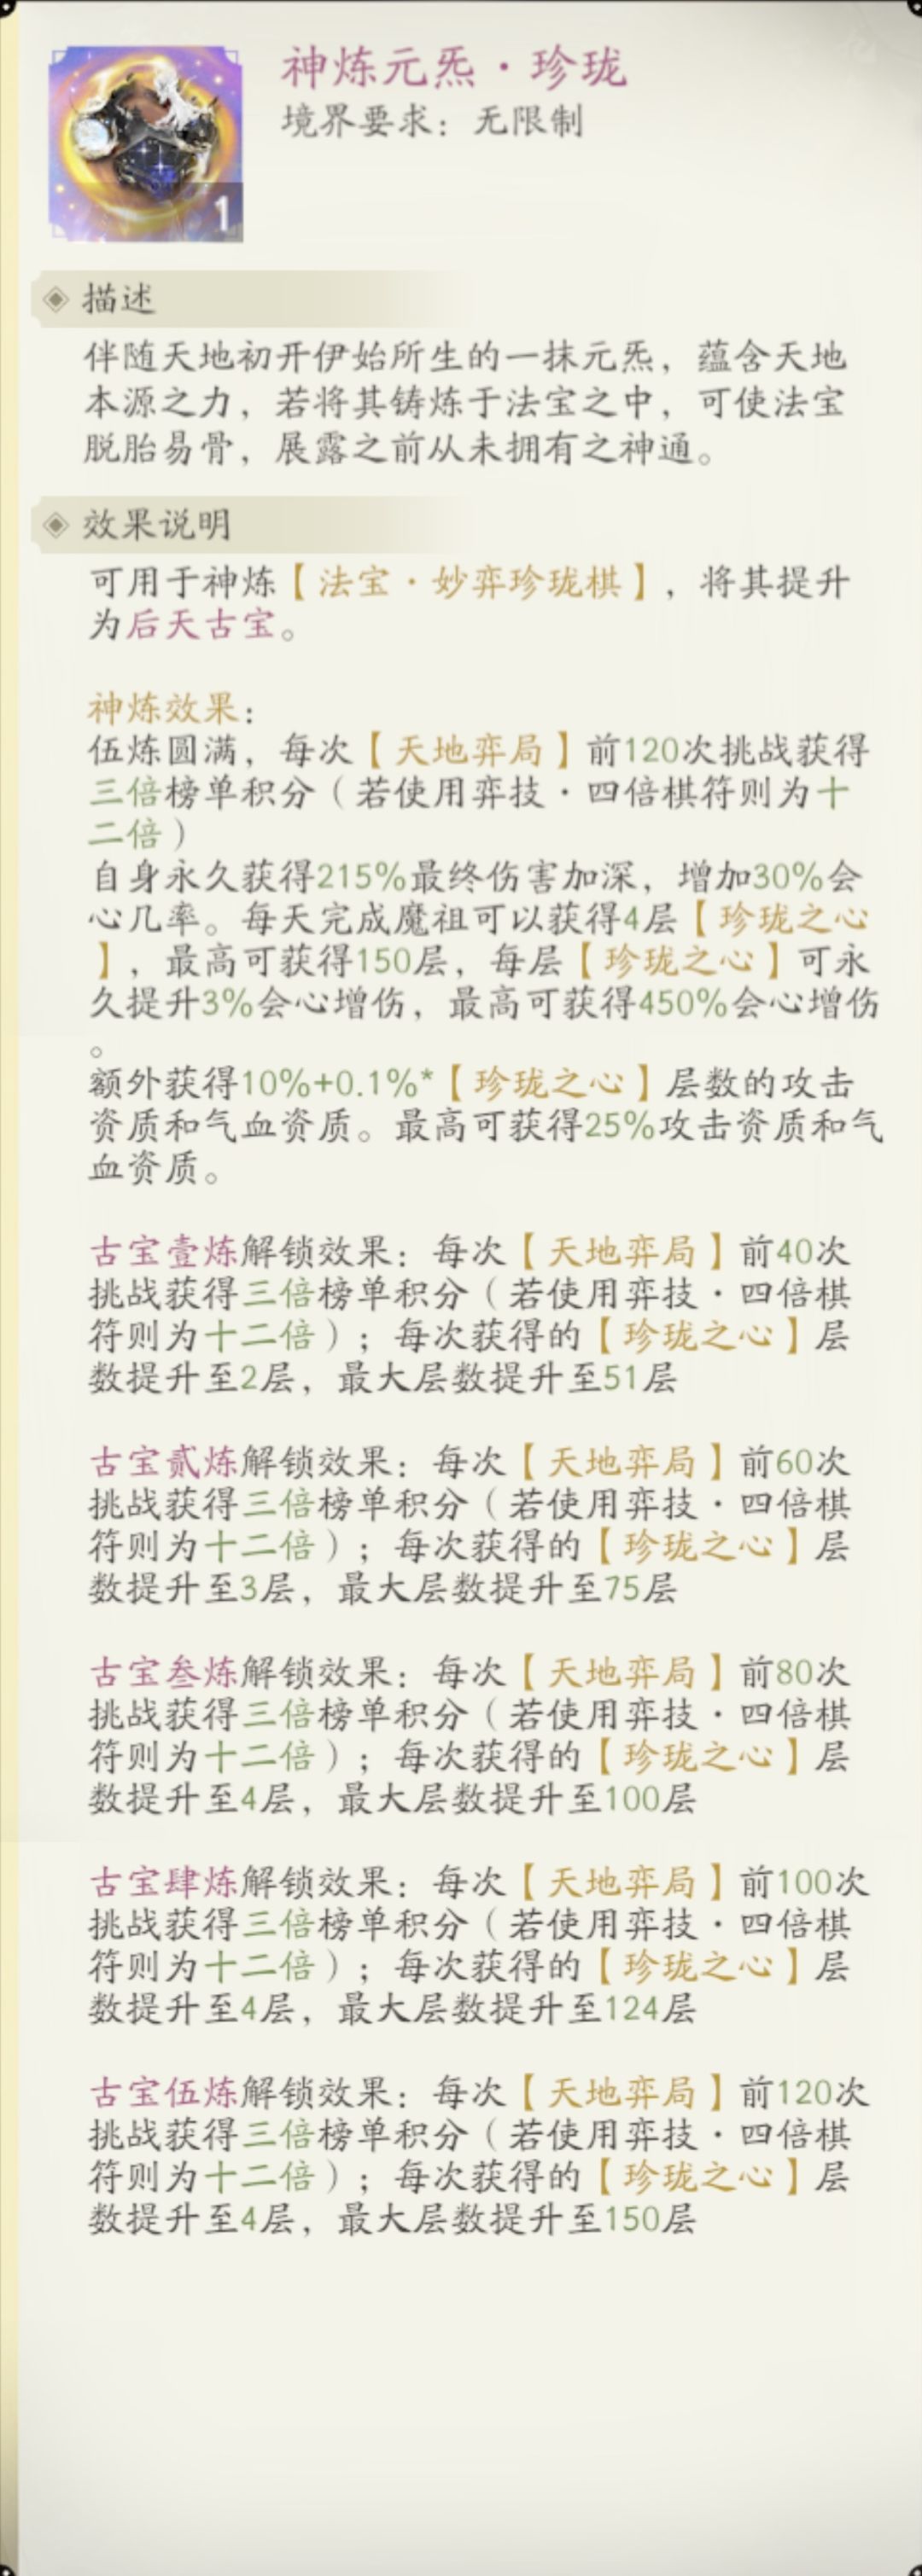 神炼元炁·珍珑
境界要求：无限制
1
描述
伴随天地初开伊始所生的一抹元炁，蕴含天地
本源之力，若将其铸炼于法宝之中，可使法宝
脱胎易骨，展露之前从未拥有之神通。
效果说明
可用于神炼【法宝·妙弈珍珑棋】，将其提升
为后天古宝。
神炼效果：
伍炼圆满，每次【天地弈局】前120次挑战获得
三倍榜单积分（若使用弈技·四倍棋符则为十
二倍）
自身永久获得215%最终伤害加深，增加30%会
心几率。每天完成魔祖可以获得4层【珍珑之心
】，最高可获得150层，每层【珍珑之心】可永
久提升3%会心增伤，最高可获得450%会心增伤
。
额外获得10%+0.1%*【珍珑之心】层数的攻击
资质和气血资质。最高可获得25%攻击资质和气
血资质。
古宝壹炼解锁效果：每次【天地弈局】前40次
挑战获得三倍榜单积分（若使用弈技·四倍棋
符则为十二倍）；每次获得的【珍珑之心】层
数提升至2层，最大层数提升至51层
古宝贰炼解锁效果：每次【天地弈局】前60次
挑战获得三倍榜单积分（若使用弈技·四倍棋
符则为十二倍）；每次获得的【珍珑之心】层
数提升至3层，最大层数提升至75层
古宝叁炼解锁效果：每次【天地弈局】前80次
挑战获得三倍榜单积分（若使用弈技·四倍棋
符则为十二倍）；每次获得的【珍珑之心】层
数提升至4层，最大层数提升至100层
古宝肆炼解锁效果：每次【天地弈局】前100次
挑战获得三倍榜单积分（若使用弈技·四倍棋
符则为十二倍）；每次获得的【珍珑之心】层
数提升至4层，最大层数提升至124层
古宝伍炼解锁效果：每次【天地弈局】前120次
挑战获得三倍榜单积分（若使用弈技·四倍棋
符则为十二倍）；每次获得的【珍珑之心】层
数提升至4层，最大层数提升至150层